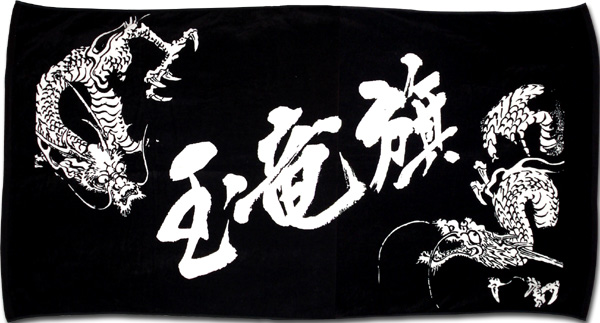 玉竜旗